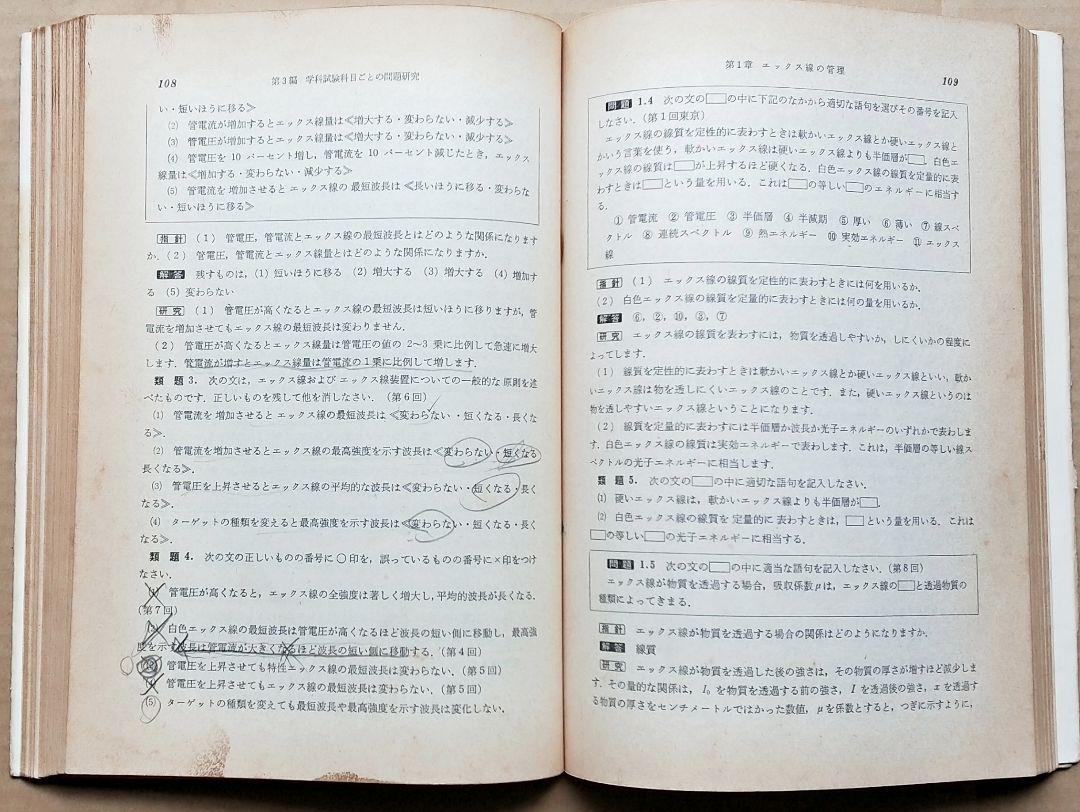 108
第3編 学科試験科目ごとの問題研究
い・短いほうに移る≫
(2) 管電流が増加するとエックス線量は≪増大する・変わらない・減少する≫
(3) 管電圧が増加するとエックス線量は≪増大する・変わらない・減少する≫
(4) 管電圧を 10 パーセント増し，管電流を 10 パーセント減じたとき，エックス
線量は≪増加する・変わらない・減少する≫
(5) 管電流を増加させるとエックス線の最短波長は≪長いほうに移る・変わらな
い・短いほうに移る≫
指針 (1) 管電圧，管電流とエックス線の最短波長とはどのような関係になります
か．(2) 管電圧，管電流とエックス線量とはどのような関係になりますか．
解答 残すものは，(1) 短いほうに移る (2) 増大する (3) 増大する (4) 増加す
る (5) 変わらない
研究 (1) 管電圧が高くなるとエックス線の最短波長は短いほうに移りますが，管
電流を増加させてもエックス線の最短波長は変わりません．
(2) 管電圧が高くなるとエックス線量は管電圧の値の 2〜3 乗に比例して急速に増大
します．管電流が増すとエックス線量は管電流の1乗に比例して増します．
類題 3． 次の文は，エックス線およびエックス線装置についての一般的な原則を述
べたものです．正しいものを残して他を消しなさい．(第6回)
(1) 管電流を増加させるとエックス線の最短波長は≪変わらない・短くなる・長くな
る≫．
(2) 管電流を増加させるとエックス線の最高強度を示す波長は≪変わらない・短くなる
長くなる≫．
(3) 管電圧を上昇させるとエックス線の平均的な波長は≪変わらない・短くなる・長く
なる≫．
(4) ターゲットの種類を変えると最高強度を示す波長は≪変わらない・短くなる・長く
なる≫．
類題 4． 次の文の正しいものの番号に○印を，誤っているものの番号に×印をつけ
なさい．
(1) 管電圧が高くなると，エックス線の全強度は著しく増大し，平均的波長が長くなる．
(第7回)
(2) 白色エックス線の最短波長は管電圧が高くなるほど波長の短い側に移動し，最高強
度を示す波長は管電流が大きくなるほど波長の短い側に移動する．(第4回)
(3) 管電圧を上昇させても特性エックス線の最短波長は変わらない．(第5回)
(4) 管電圧を上昇させてもエックス線の最短波長は変わらない．(第5回)
(5) ターゲットの種類を変えても最短波長や最高強度を示す波長は変化しない．
第1章 エックス線の管理
109
問題 1.4 次の文の□の中に下記のなかから適切な語句を選びその番号を記入
しなさい．(第1回東京)
エックス線の線質を定性的に表わすときは軟かいエックス線とか硬いエックス線と
かいう言葉を使う，軟かいエックス線は硬いエックス線よりも半価層が□．白色エ
ックス線の線質は□が上昇するほど硬くなる．白色エックス線の線質を定量的に表
わすときは□という量を用いる．これは□の等しい□のエネルギーに相当す
る．
① 管電流 ② 管電圧 ③ 半価層 ④ 半減期 ⑤ 厚い ⑥ 薄い ⑦ 線スペ
クトル ⑧ 連続スペクトル ⑨ 熱エネルギー ⑩ 実効エネルギー ⑪ エックス
線
指針 (1) エックス線の線質を定性的に表わすときには何を用いるか．
(2) 白色エックス線の線質を定量的に表わすときには何の量を用いるか．
解答 ⑥，②，⑩，③，⑦
研究 エックス線の線質を表わすには，物質を透過しやすいか，しにくいかの程度に
よってします．
(1) 線質を定性的に表わすときは軟かいエックス線とか硬いエックス線といい，軟か
いエックス線は物を透しにくいエックス線のことです．また，硬いエックス線というのは
物を透しやすいエックス線ということになります．
(2) 線質を定量的に表わすには半価層か波長か光子エネルギーのいずれかで表わしま
す．白色エックス線の線質は実効エネルギーで表わします．これは，半価層の等しい線ス
ペクトルの光子エネルギーに相当します．
類題 5． 次の文の□の中に適切な語句を記入しなさい．
(1) 硬いエックス線は，軟かいエックス線よりも半価層が□．
(2) 白色エックス線の線質を定量的に表わすときは，□という量を用いる．これは
□の等しい□の光子エネルギーに相当する．
問題 1.5 次の文の□の中に適当な語句を記入しなさい．(第8回)
エックス線が物質を透過する場合，吸収係数μは，エックス線の□と透過物質の
種類によってきまる．
指針 エックス線が物質を透過する場合の関係はどのようになりますか．
解答 線質
研究 エックス線が物質を透過した後の強さは，その物質の厚さが増すほど減少しま
す．その量的な関係は，I₀ を物質を透過する前の強さ，I を透過後の強さ，x を透過す
る物質の厚さをセンチメートルではかった数値，μを係数とすると，つぎに示すように，